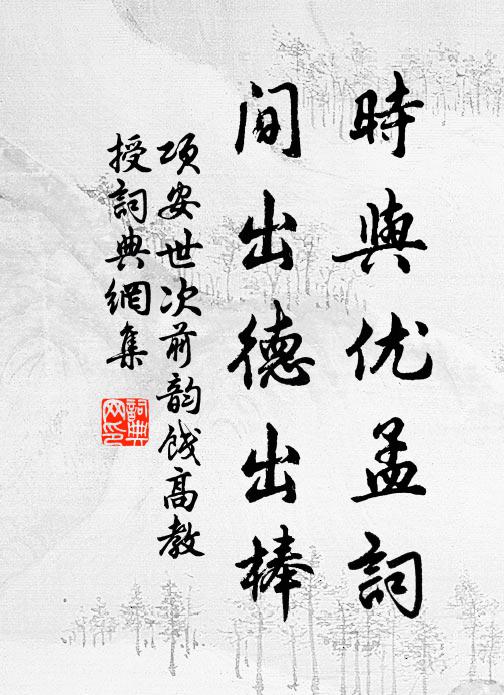 時與优孟詞
間出德出棒
项安世次前韵餞高教
授詞典網集
詞典
网印